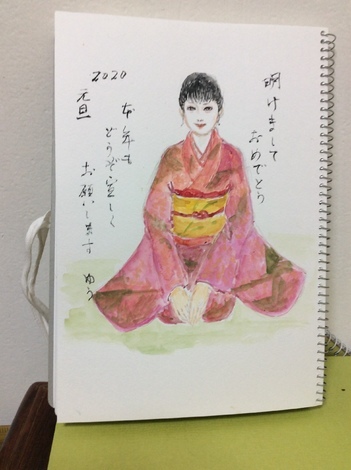 明けまして
おめでとう
本年も
どうぞ宜しく
お願いします
ゆう
2020
元旦